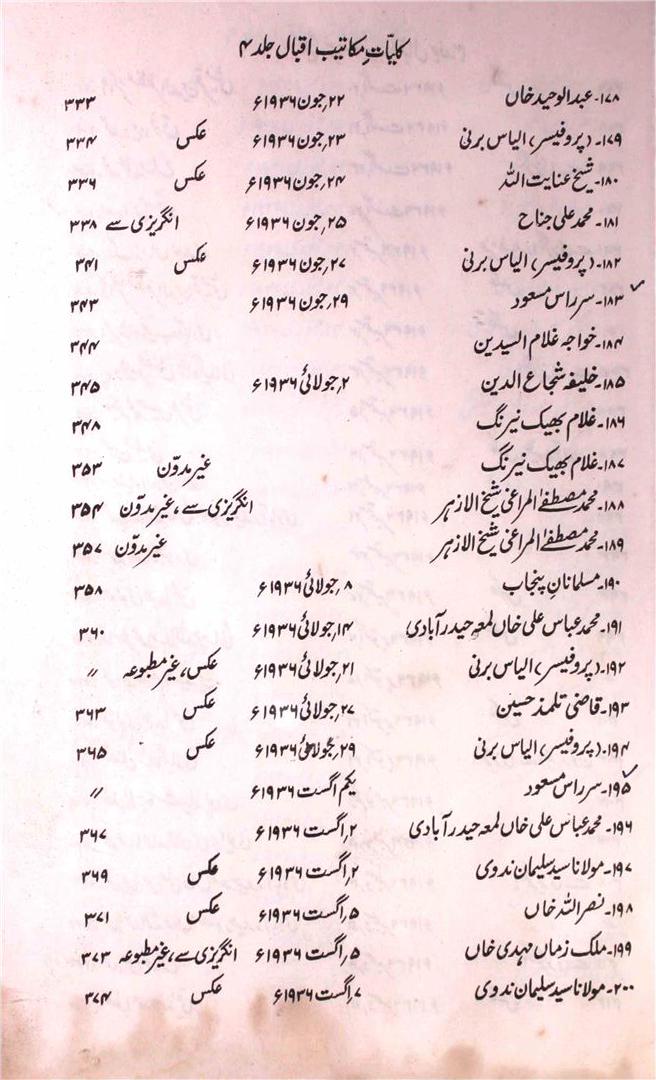 کلیّاتِ مکاتیب اقبال جلد ۴
۱۷۸۔ عبدالوحید خاں ۲۲؍جون ۱۹۳۶ء ۳۳۳
۱۷۹۔ (پروفیسر) الیاس برنی ۲۳؍جون ۱۹۳۶ء عکس ۳۳۴
۱۸۰۔ شیخ عنایت اللہ ۲۴؍جون ۱۹۳۶ء عکس ۳۳۶
۱۸۱۔ محمد علی جناح ۲۵؍جون ۱۹۳۶ء انگریزی سے ۳۳۸
۱۸۲۔ (پروفیسر) الیاس برنی ۲۷؍جون ۱۹۳۶ء عکس ۳۴۱
۱۸۳۔ سرراس مسعود ۲۹؍جون ۱۹۳۶ء ۳۴۳
۱۸۴۔ خواجہ غلام السیدین ۳۴۴
۱۸۵۔ خلیفہ شجاع الدین ۲؍جولائی ۱۹۳۶ء ۳۴۵
۱۸۶۔ غلام بھیک نیرنگ ۳۴۸
۱۸۷۔ غلام بھیک نیرنگ غیر مدوّن ۳۵۳
۱۸۸۔ محمد مصطفےٰ المراغی شیخ الازہر انگریزی سے، غیر مدوّن ۳۵۴
۱۸۹۔ محمد مصطفےٰ المراغی شیخ الازہر غیر مدوّن ۳۵۷
۱۹۰۔ مسلمانانِ پنجاب ۸؍جولائی ۱۹۳۶ء ۳۵۸
۱۹۱۔ محمد عباس علی خاں لمعہ حیدرآبادی ۱۴؍جولائی ۱۹۳۶ء ۳۶۰
۱۹۲۔ (پروفیسر) الیاس برنی ۲۱؍جولائی ۱۹۳۶ء عکس، غیر مطبوعہ //
۱۹۳۔ قاضی تلمذ حسین ۲۷؍جولائی ۱۹۳۶ء عکس ۳۶۳
۱۹۴۔ (پروفیسر) الیاس برنی ۲۹؍جولائی ۱۹۳۶ء عکس ۳۶۵
۱۹۵۔ سرراس مسعود یکم اگست ۱۹۳۶ء //
۱۹۶۔ محمد عباس علی خاں لمعہ حیدرآبادی ۲؍اگست ۱۹۳۶ء ۳۶۷
۱۹۷۔ مولانا سید سلیمان ندوی ۲؍اگست ۱۹۳۶ء عکس ۳۶۹
۱۹۸۔ نصر اللہ خاں ۵؍اگست ۱۹۳۶ء عکس ۳۷۱
۱۹۹۔ ملک زماں مہدی خاں ۵؍اگست ۱۹۳۶ء انگریزی سے، غیر مطبوعہ ۳۷۳
۲۰۰۔ مولانا سید سلیمان ندوی ۷؍اگست ۱۹۳۶ء عکس ۳۷۴